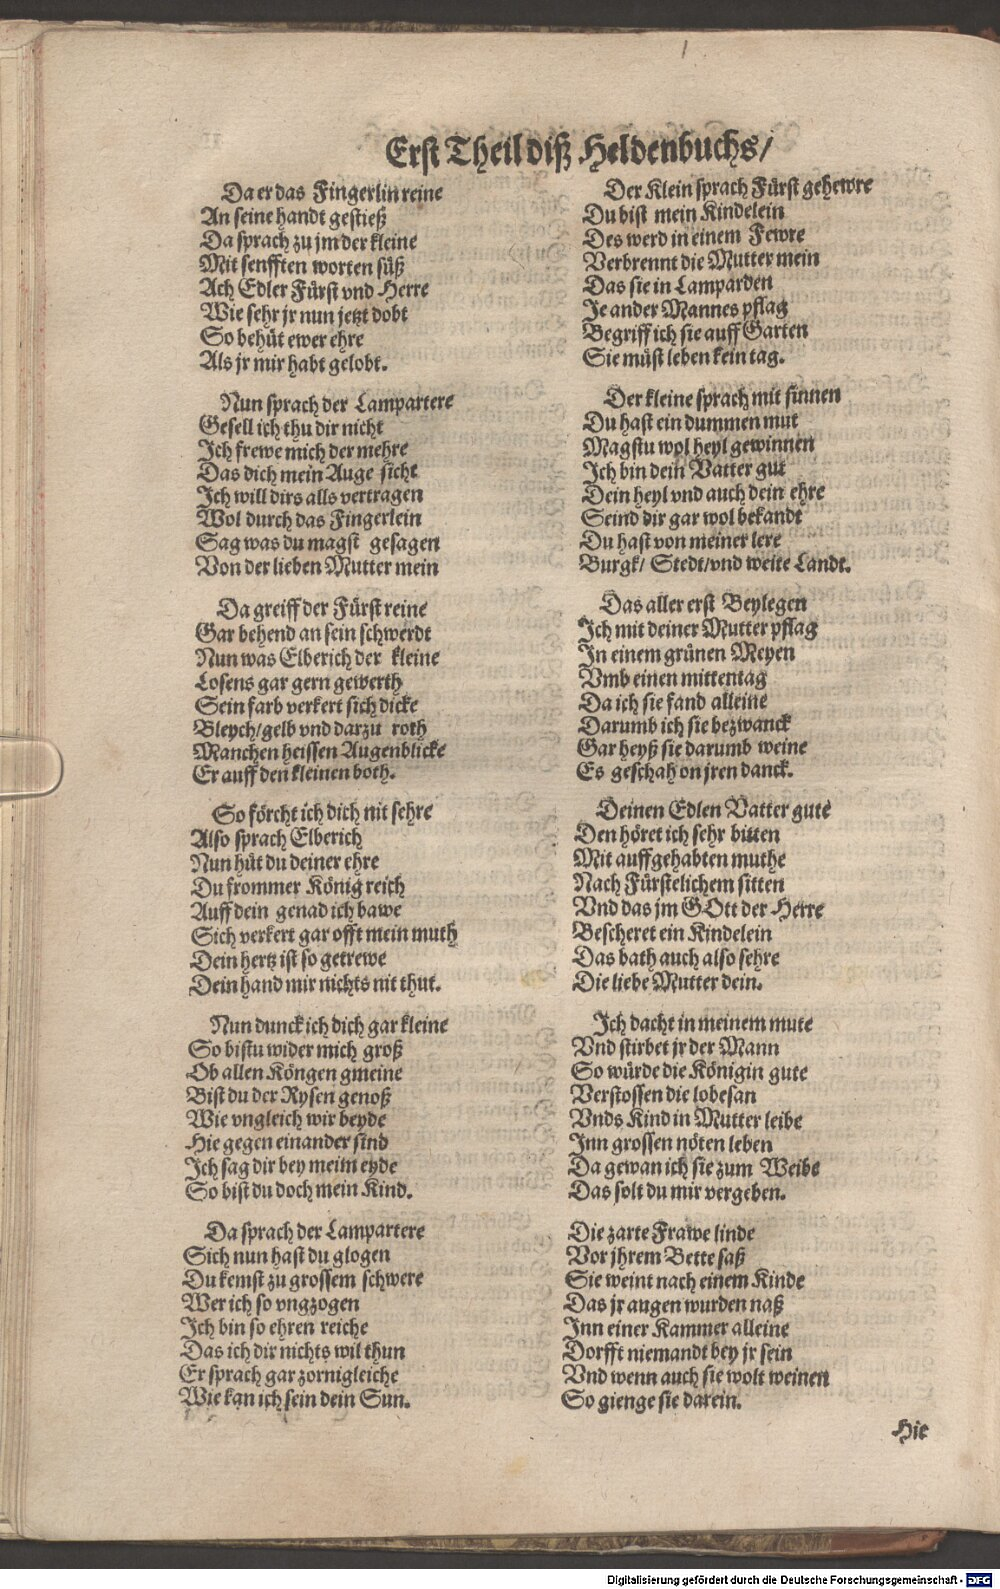 Erst Theil diß Heldenbuchs/
Da er das Fingerlin reine
An seine handt gestieß
Da sprach zu jm der kleine
Mit senfften worten süß
Ach Edler Fürst vnd Herre
Wie sehr jr nun jetzt dobt
So behüt ewer ehre
Als jr mir habt gelobt.
Nun sprach der Lampartere
Gesell ich thu dir nicht
Ich frewe mich der mehre
Das dich mein Auge sicht
Ich will dirs alls vertragen
Wol durch das Fingerlein
Sag was du magst gesagen
Von der lieben Mutter mein
Da greiff der Fürst reine
Gar behend an sein schwerdt
Nun was Elberich der kleine
Losens gar gern gewerth
Sein farb verkert sich dicke
Bleych/gelb vnd darzu roth
Manchen heissen Augenblicke
Er auff den kleinen both.
So förcht ich dich nit sehre
Also sprach Elberich
Nun hüt du deiner ehre
Du frommer König reich
Auff dein genad ich bawe
Sich verkert gar offt mein muth
Dein hertz ist so getrewe
Dein hand mir nichts nit thut.
Nun dunck ich dich gar kleine
So bistu wider mich groß
Ob allen Köngen gmeine
Bist du der Rysen genoß
Wie vngleich wir beyde
Hie gegen einander sind
Ich sag dir bey meim eyde
So bist du doch mein Kind.
Da sprach der Lampartere
Sich nun hast du glogen
Du kemst zu grossem schwere
Wer ich so vngzogen
Ich bin so ehren reiche
Das ich dir nichts wil thun
Er sprach gar zornigleiche
Wie kan ich sein dein Sun.
Der Klein sprach Fürst gehewre
Du bist mein Kindelein
Des werd in einem Fewre
Verbrennt die Mutter mein
Das sie in Lamparden
Je ander Mannes pflag
Begriff ich sie auff Garten
Sie müst leben kein tag.
Der kleine sprach mit sinnen
Du hast ein dummen mut
Magstu wol heyl gewinnen
Ich bin dein Vatter gut
Dein heyl vnd auch dein ehre
Seind dir gar wol bekandt
Du hast von meiner lere
Burgk/ Stedt/vnd weite Landt.
Das aller erst Beylegen
Ich mit deiner Mutter pflag
In einem grünen Meyen
Vmb einen mittentag
Da ich sie fand alleine
Darumb ich sie bezwanck
Gar heyß sie darumb weine
Es geschah on jren danck.
Deinen Edlen Vatter gute
Den höret ich sehr bitten
Mit auffgehabten muthe
Nach Fürstelichem sitten
Vnd das jm GOtt der Herre
Bescheret ein Kindelein
Das bath auch also sehre
Die liebe Mutter dein.
Ich dacht in meinem mute
Vnd stirbet jr der Mann
So würde die Königin gute
Verstossen die lobesan
Vnds Kind in Mutter leibe
Inn grossen nöten leben
Da gewan ich sie zum Weibe
Das solt du mir vergeben.
Die zarte Frawe linde
Vor jhrem Bette saß
Sie weint nach einem Kinde
Das jr augen wurden naß
Inn einer Kammer alleine
Dorfft niemandt bey jr sein
Vnd wenn auch sie wolt weinen
So gienge sie darein.
Hie
Digitalisierung gefördert durch die Deutsche Forschungsgemeinschaft - DFG